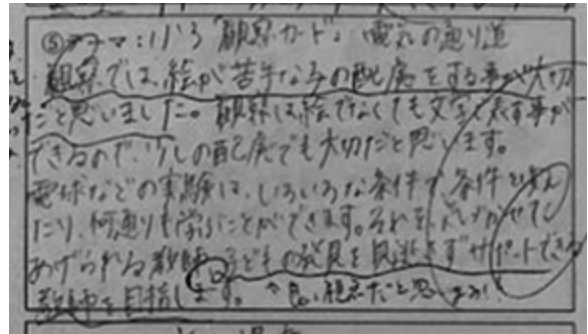 ⑤テーマ:いろいろ「観察カード」電気の通り道
観察では、絵が苦手な子の配慮をする事が大切
だと思いました。観察は絵でなくても文字で表す事が
できるので、少しの配慮でも大切だと思います。
電球などの実験は、いろいろな条件で、条件を
たり、何通りも学ぶことができます。それを
あげられる教師 子どもの発見を見逃さずサポートできる
教師を目指します。 ↑良い視点だと思います!